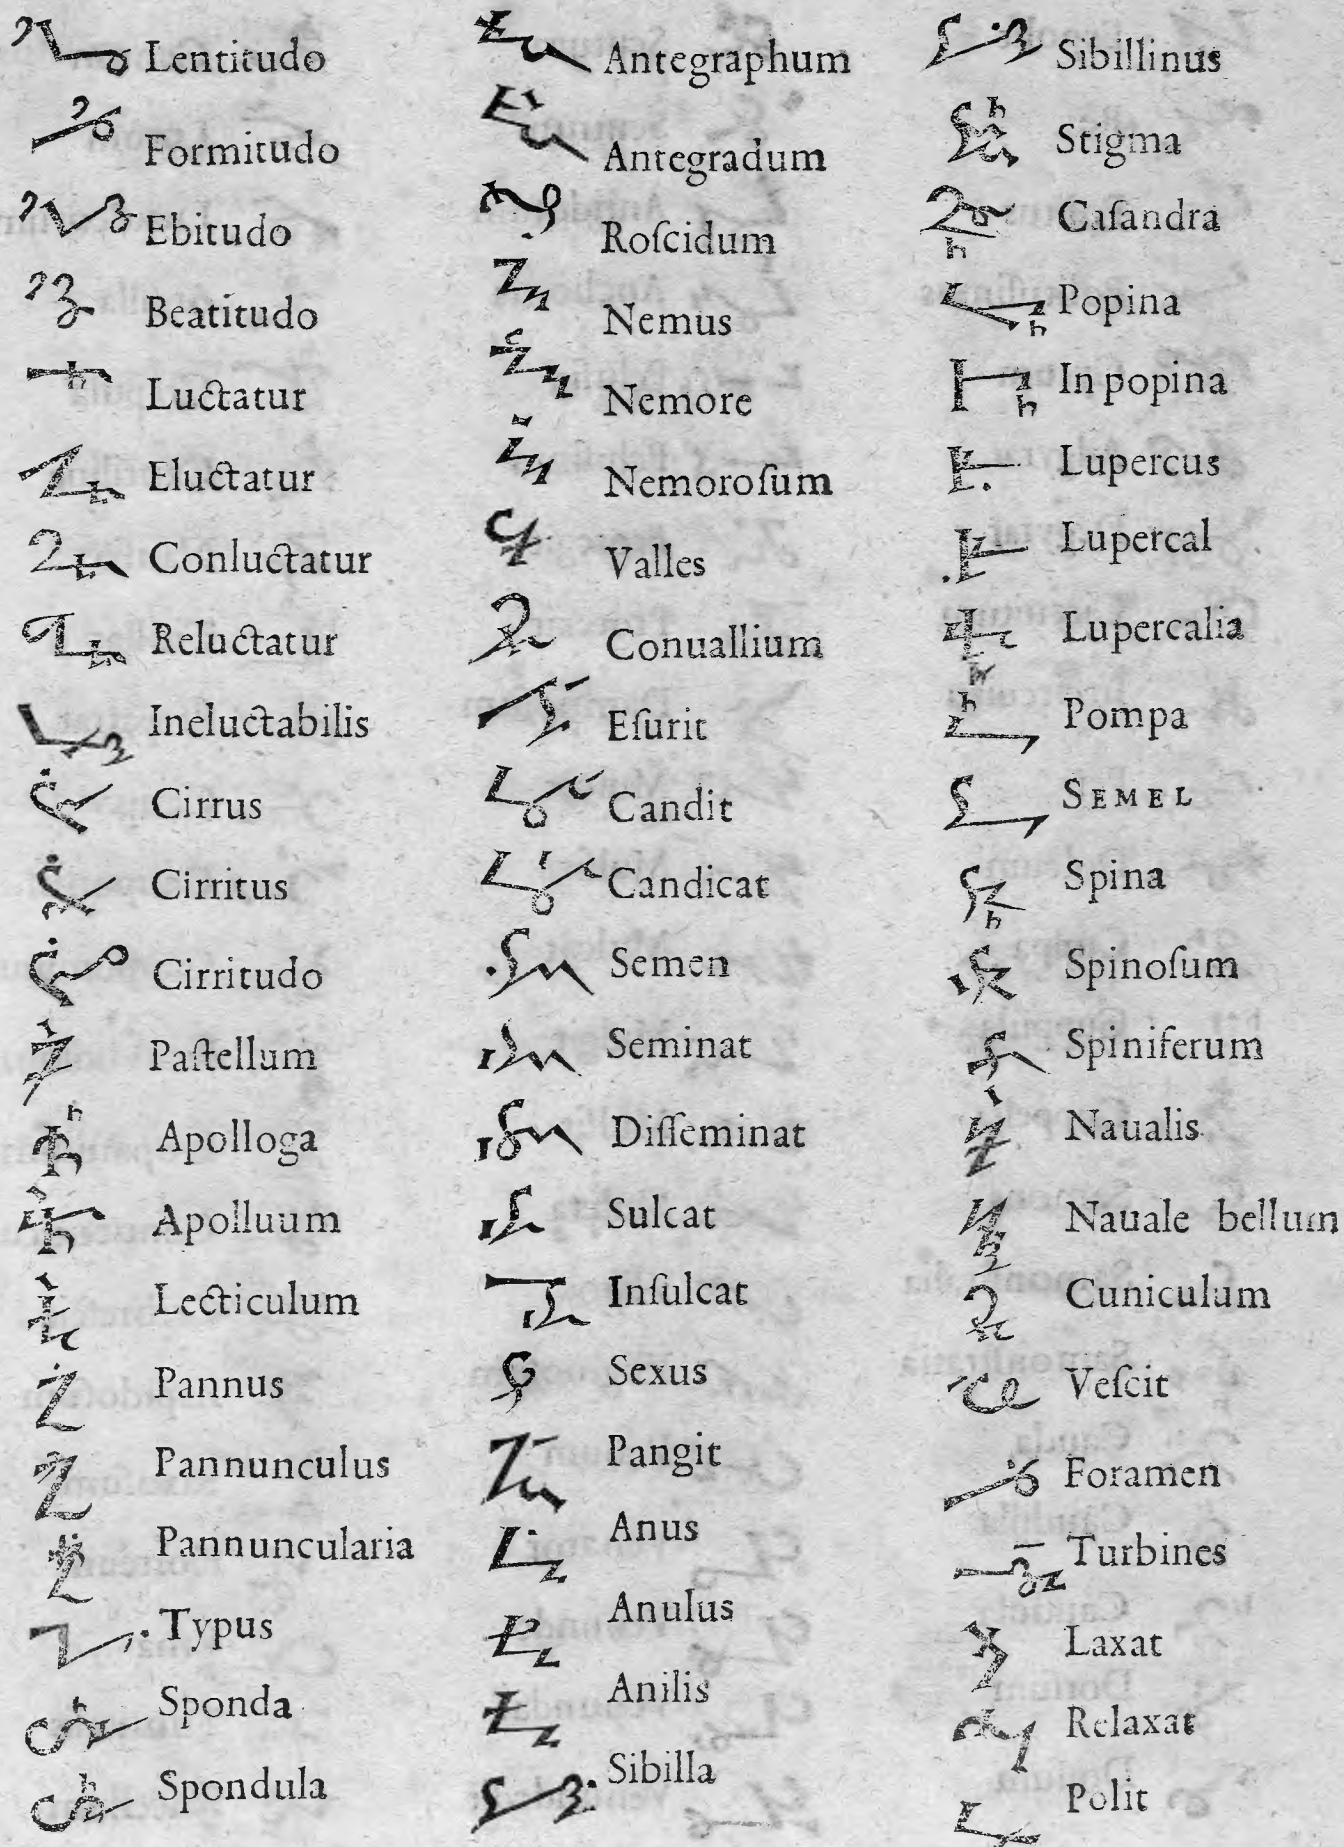 Lentitudo
Formitudo
Ebitudo
Beatitudo
Luctatur
Eluctatur
Conluctatur
Reluctatur
Ineluctabilis
Cirrus
Cirritus
Cirritudo
Paſtellum
Apolloga
Apolluum
Lecticulum
Pannus
Pannunculus
Pannuncularia
Typus
Sponda
Spondula
Antegraphum
Antegradum
Roſcidum
Nemus
Nemore
Nemoroſum
Valles
Conuallium
Eſurit
Candit
Candicat
Semen
Seminat
Diſſeminat
Sulcat
Inſulcat
Sexus
Pangit
Anus
Anulus
Anilis
Sibilla
Sibillinus
Stigma
Caſandra
Popina
In popina
Lupercus
Lupercal
Lupercalia
Pompa
SEMEL
Spina
Spinoſum
Spiniferum
Naualis
Nauale bellum
Cuniculum
Veſcit
Foramen
Turbines
Laxat
Relaxat
Polit